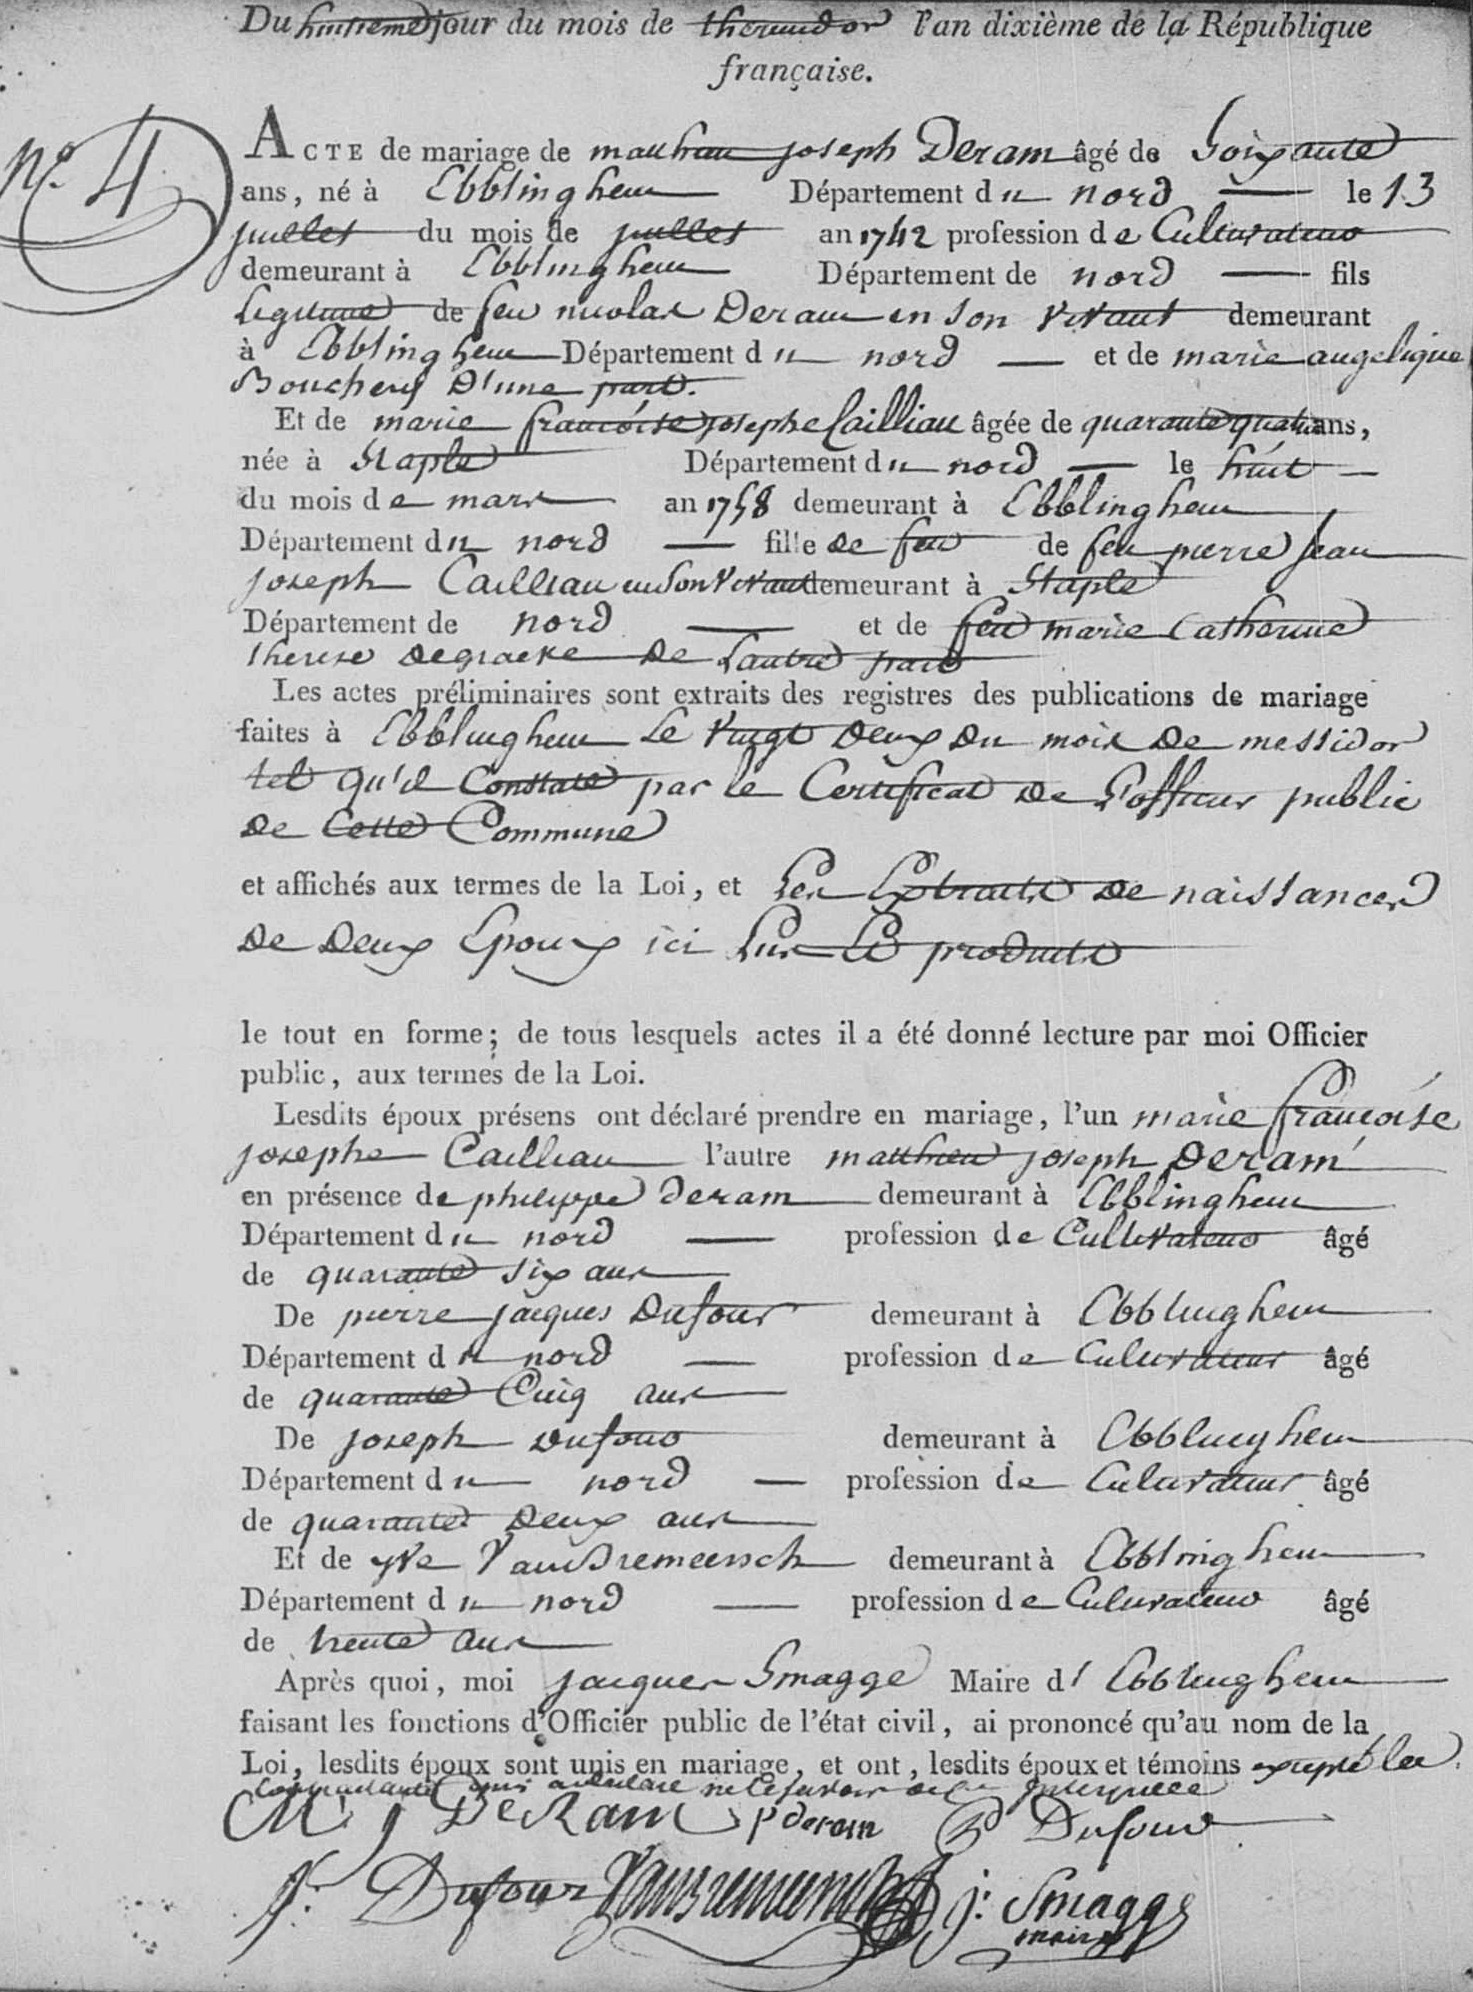 Du huitieme jour du mois de thermidor l'an dixième de la République
française.
N.º 4
ACTE de mariage de matthieu joseph Deram âgé de Soixante
ans, né à Ebblinghem Département du nord le 13
juillet du mois de juillet an 1742 profession de Cultivateur
demeurant à Ebblinghem Département de nord fils
Legitime de feu nicolas Deram en son vivant demeurant
à Ebblinghem Département du nord et de marie angelique
Bouchery D'une part.
Et de marie francóise josephe Cailliau âgée de quarante quatre ans,
née à Staple Département du nord le huit
du mois de mars an 1758 demeurant à Ebblinghem
Département du nord fille de feu de feu pierre jean
joseph Cailliau en son vivant demeurant à Staple
Département de nord et de feu marie Catherine
therese degraeve de Lautre part
Les actes préliminaires sont extraits des registres des publications de mariage
faites à Ebblinghem Le vingt deux du mois de messidor
tel qu'il Constate par le Certificat de L'officier public
de Cette Commune
et affichés aux termes de la Loi, et Les Extraits de naissances
de deux Epoux ici produits
le tout en forme; de tous lesquels actes il a été donné lecture par moi Officier
public, aux termes de la Loi.
Lesdits époux présens ont déclaré prendre en mariage, l'un marie francóise
josephe Cailliau l'autre matthieu joseph Deram
en présence de philippe deram demeurant à Ebblinghem
Département du nord profession de Cultivateur âgé
de quarante six ans
De pierre jacques Dufour demeurant à Ebblinghem
Département du nord profession de Cultivateur âgé
de quarante Cinq ans
De joseph Dufour demeurant à Ebblinghem
Département du nord profession de Cultivateur âgé
de quarante Deux ans
Et de yve Vanbremeersch demeurant à Ebblinghem
Département du nord profession de Cultivateur âgé
de trente ans
Après quoi, moi jacques Smagge Maire d' Ebblinghem
faisant les fonctions d'Officier public de l'état civil, ai prononcé qu'au nom de la
Loi, lesdits époux sont unis en mariage, et ont, lesdits époux et témoins excepté la
M j DeRam p deram P Dufour
j. Dufour Vanbremeersch j: Smagge
maire